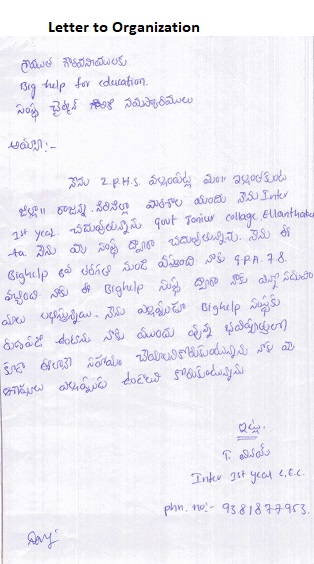 Letter to Organization
గౌరవనీయులకు
Big help for education.
సంస్థ చైర్మన్ గారికి నమస్కారములు
అయ్యా:-
నేను Z.P.H.S. మం॥ ఇల్లంతకుంట
జిల్లా॥ రాజన్న సిరిసిల్లా పాఠశాల యందు నేను Inter
1st year చదువుతున్నాను Govt Jonior collage Ellanthaku
-ta నేను మీ సంస్థ ద్వారా చదువుతున్నాను. నేను ఈ
Bighelp తరగతి నుండి వస్తుంది నాకు G.P.A. 7.8.
వచ్చింది నాకు ఈ Bighelp సంస్థ ద్వారా నాకు ఎన్నో
లభిస్తున్నాయి. నేను ఎల్లప్పుడూ Bighelp సంస్థకు
రుణపడి ఉంటాను నాకు ముందు ఉన్న భవిష్యత్తులో
కూడా ఈలాంటి సహాయం నాకు మీ
ఎల్లప్పుడు ఉండాలని కోరుకుంటున్నాను
ఇట్లు.
T. వినయ్
Inter 1st year C.E.C.
phn. no:- 9381877953.